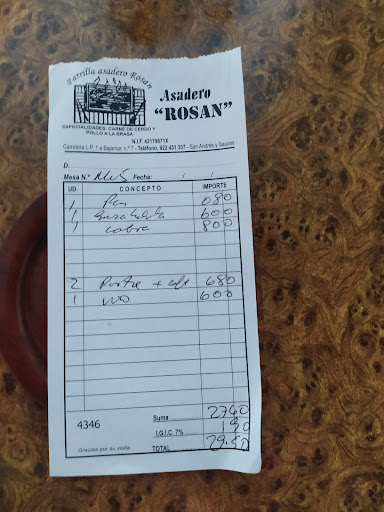 Parrilla asadero Rosan
Asadero
"ROSAN"
ESPECIALIDADES: CARNE DE CERDO Y
POLLO A LA BRASA
N.I.F. 42178871X
Carretera L.P. 1 a Bajamar, n.º 7 - Teléfono, 922 451 337 - San Andrés y Sauces
D.
Mesa N.º Fecha: / /
UD. CONCEPTO IMPORTE
1 Pan 080
1 Ensalada 600
1 cabra 800
2 Postre + cafe 680
1 600
Suma 2760
4346 I.G.I.C. 7% 190
Gracias por su visita TOTAL 29.50